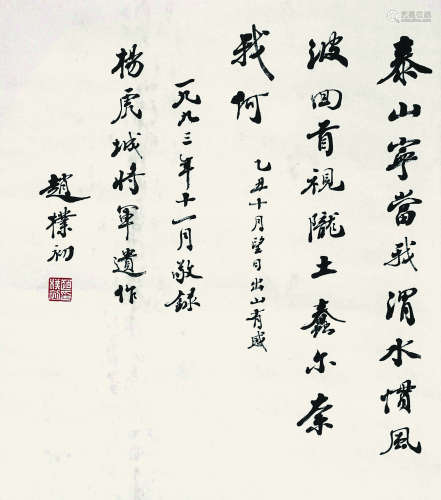 泰山寧當我渭水慣風
波回首視隴土蠢尔奈
我何
乙丑十月望日出山有感
一九九三年十一月敬録
楊虎城將軍遺作
趙樸初